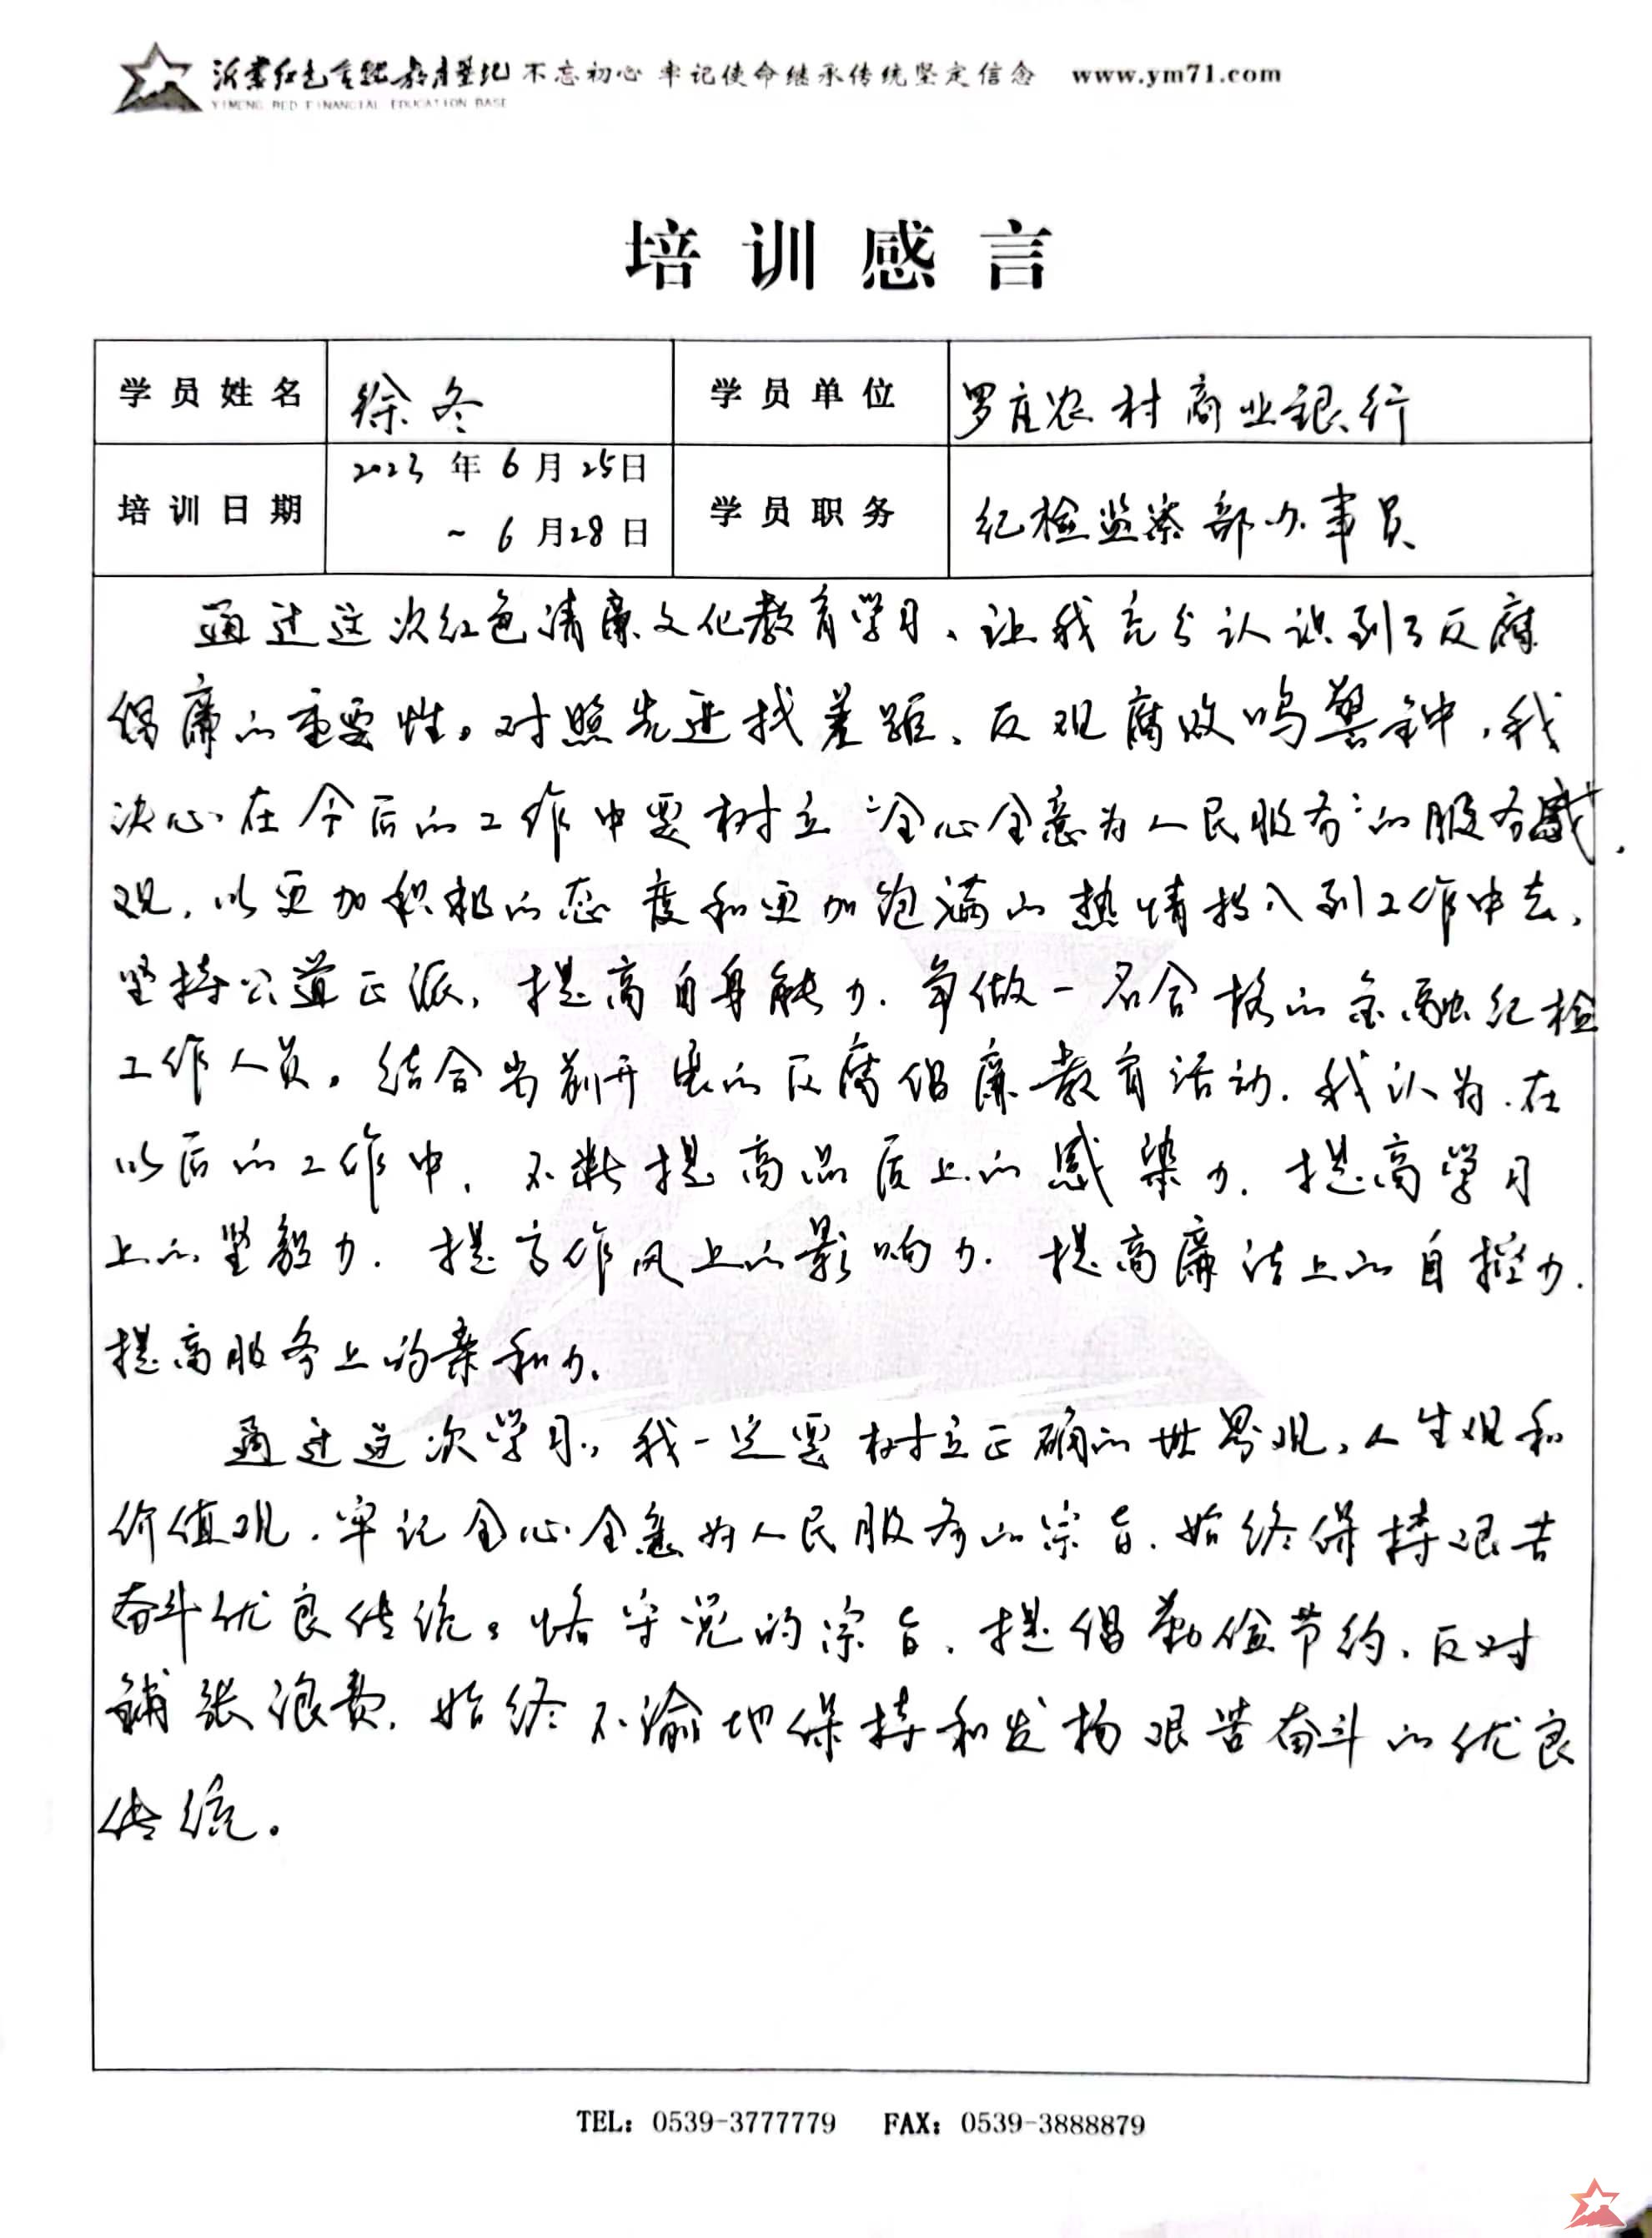 沂蒙红色金融教育基地 不忘初心 牢记使命继承传统坚定信念 www.ym71.com
YIMENG RED FINANCIAL EDUCATION BASE
培训感言
学员姓名 徐冬 学员单位 罗庄农村商业银行
培训日期 2023年6月25日 ~ 6月28日 学员职务 纪检监察部办事员
通过这次红色清廉文化教育学习、让我充分认识到了反腐
倡廉的重要性。对照先进找差距、反观腐败鸣警钟，我
决心在今后的工作中要树立“全心全意为人民服务”的服务
观，以更加积极的态度和更加饱满的热情投入到工作中去，
坚持公道正派，提高自身能力，争做一名合格的金融纪检
工作人员。结合当前开展的反腐倡廉教育活动，我认为，在
以后的工作中，不断提高品质上的感染力，提高学习
上的坚毅力，提高作风上的影响力，提高廉洁上的自控力，
提高服务上的亲和力。
通过这次学习，我一定要树立正确的世界观、人生观和
价值观，牢记全心全意为人民服务的宗旨，始终保持艰苦
奋斗优良传统。恪守党的宗旨，提倡勤俭节约、反对
铺张浪费，始终不渝地保持和发扬艰苦奋斗的优良
传统。
TEL：0539-3777779 FAX：0539-3888879